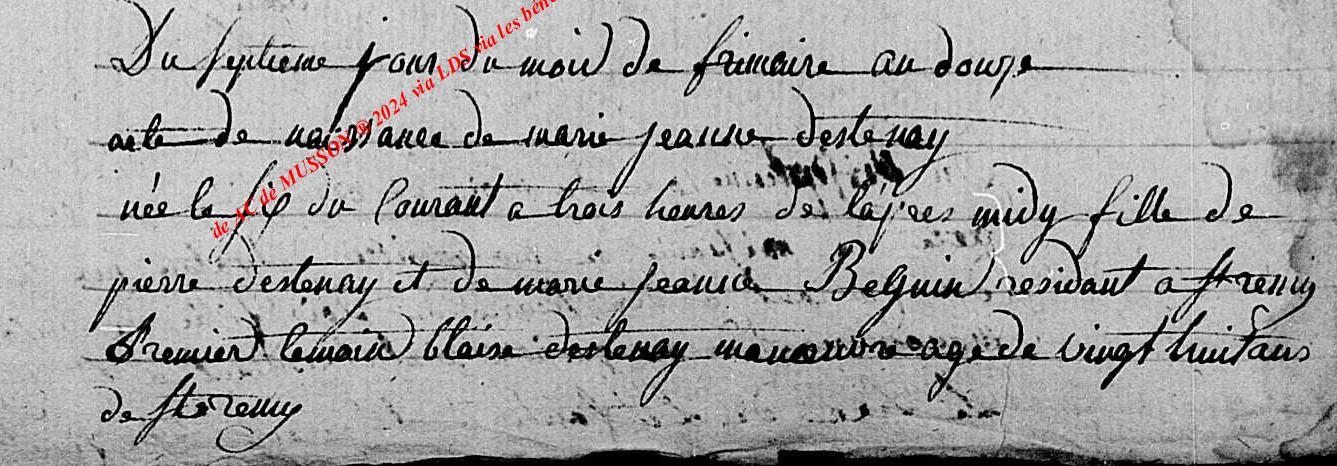 Du septieme jour du mois de frimaire an douze
acte de naissance de marie jeanne destenay
née le six du Courant a trois heures de l'apres midy fille de
pierre destenay et de marie jeanne Belguin residant a st remy
Premier temoin blaise destenay manoeuvre age de vingt huit ans
de st remy
de AC de MUSSON © 2024 via LDS via les béné